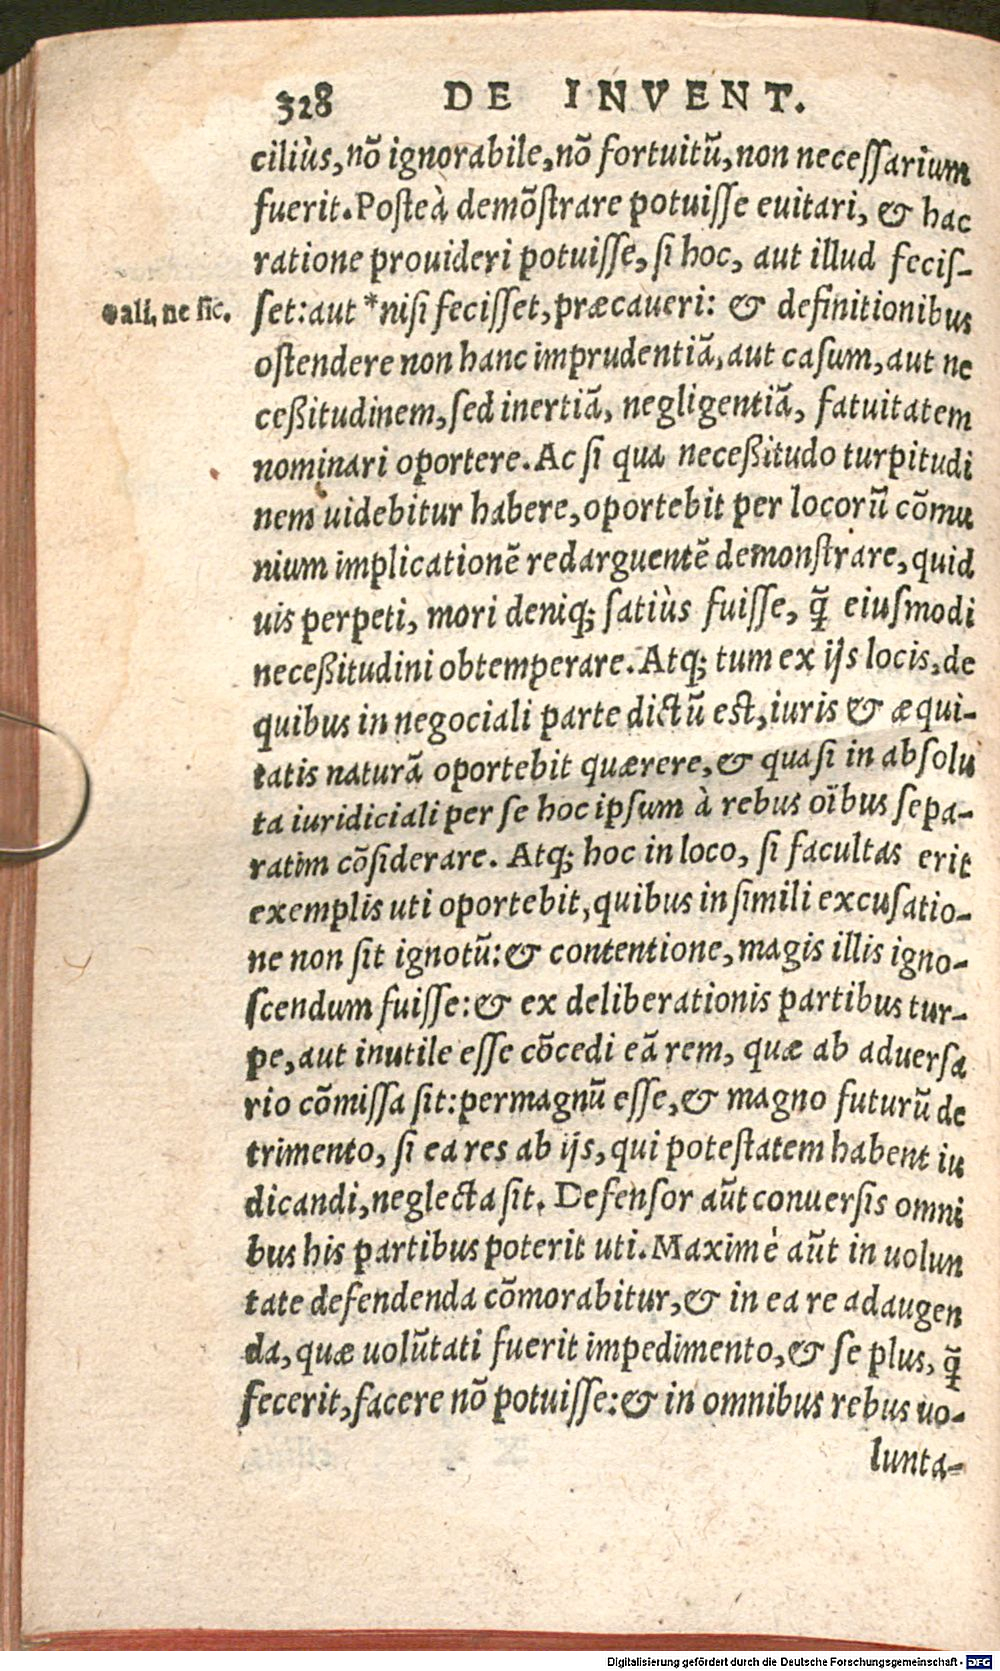 328 DE INVENT.
ciliùs, nõ ignorabile, nõ fortuitũ, non necessarium
fuerit. Posteà demõstrare potuisse euitari, & hac
ratione prouideri potuisse, si hoc, aut illud fecis-
*ali. ne sic.
set: aut *nisi fecisset, præcaueri: & definitionibus
ostendere non hanc imprudentiã, aut casum, aut ne
ceßitudinem, sed inertiã, negligentiã, fatuitatem
nominari oportere. Ac si qua neceßitudo turpitudi
nem uidebitur habere, oportebit per locorũ cõmu
nium implicationẽ redarguentẽ demonstrare, quid
uis perpeti, mori deniq; satiùs fuisse, q̃ eiusmodi
neceßitudini obtemperare. Atq; tum ex ijs locis, de
quibus in negociali parte dictũ est, iuris & æqui-
tatis naturã oportebit quærere, & quasi in absolu
ta iuridiciali per se hoc ipsum à rebus oĩbus sepa-
ratim cõsiderare. Atq; hoc in loco, si facultas erit
exemplis uti oportebit, quibus in simili excusatio-
ne non sit ignotũ: & contentione, magis illis igno-
scendum fuisse: & ex deliberationis partibus tur-
pe, aut inutile esse cõcedi eã rem, quæ ab aduersa
rio cõmissa sit: permagnũ esse, & magno futurũ de
trimento, si ea res ab ijs, qui potestatem habent iu
dicandi, neglecta sit. Defensor aũt conuersis omni
bus his partibus poterit uti. Maximè aũt in uolun
tate defendenda cõmorabitur, & in ea re adaugen
da, quæ uolũtati fuerit impedimento, & se plus, q̃
fecerit, facere nõ potuisse: & in omnibus rebus uo-
lunta-
Digitalisierung gefördert durch die Deutsche Forschungsgemeinschaft - DFG